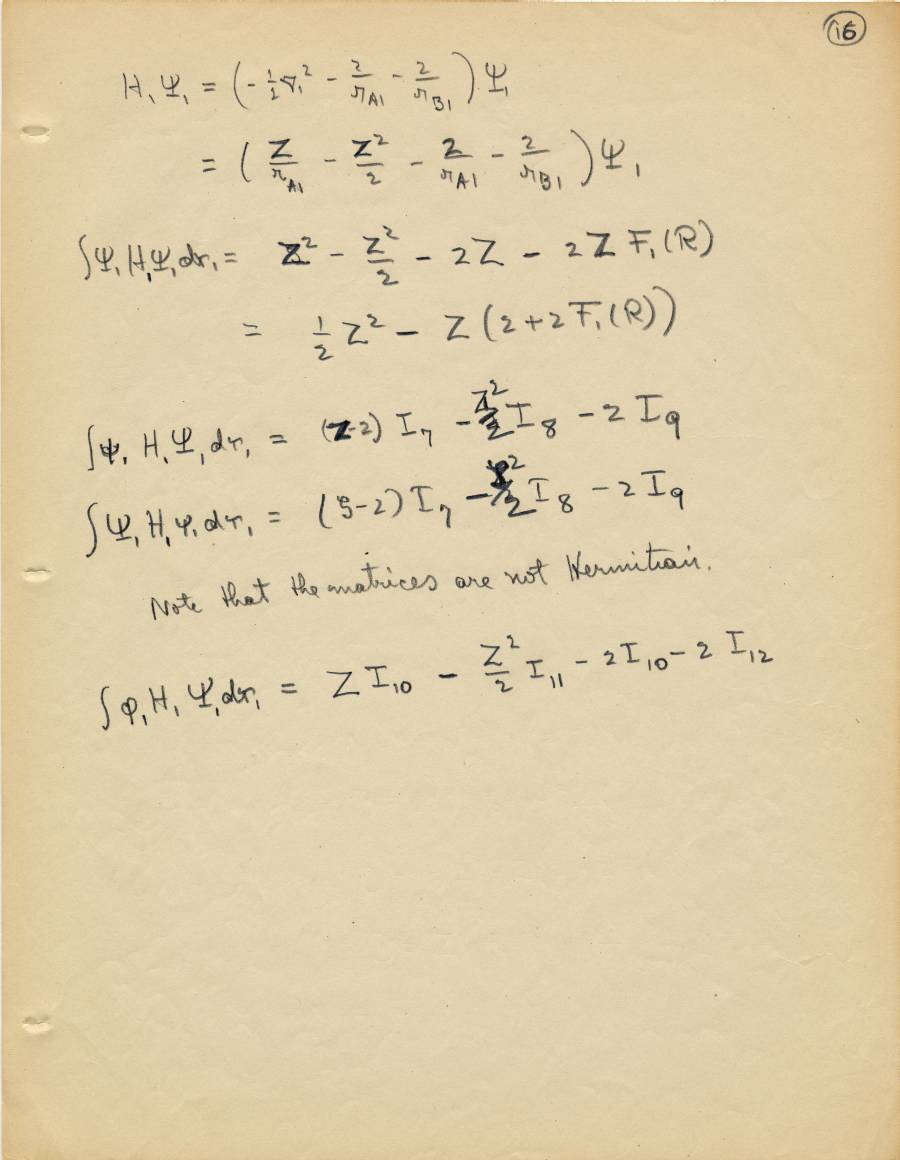 16
H₁Ψ₁ = (-½∇₁² - 2/r_A1 - 2/r_B1)Ψ₁
= (Z/r_A1 - Z²/2 - 2/r_A1 - 2/r_B1)Ψ₁
∫Ψ₁H₁Ψ₁dr₁ = Z² - Z²/2 - 2Z - 2Z F₁(R)
= ½Z² - Z(2+2F₁(R))
∫ψ₁H₁Ψ₁dr₁ = (Z-2) I₇ - Z²/2 I₈ - 2 I₉
∫Ψ₁H₁ψ₁dr₁ = (ζ-2) I₇ - ζ²/2 I₈ - 2 I₉
Note that the matrices are not Hermitian.
∫φ₁H₁Ψ₁dr₁ = Z I₁₀ - Z²/2 I₁₁ - 2I₁₀ - 2 I₁₂